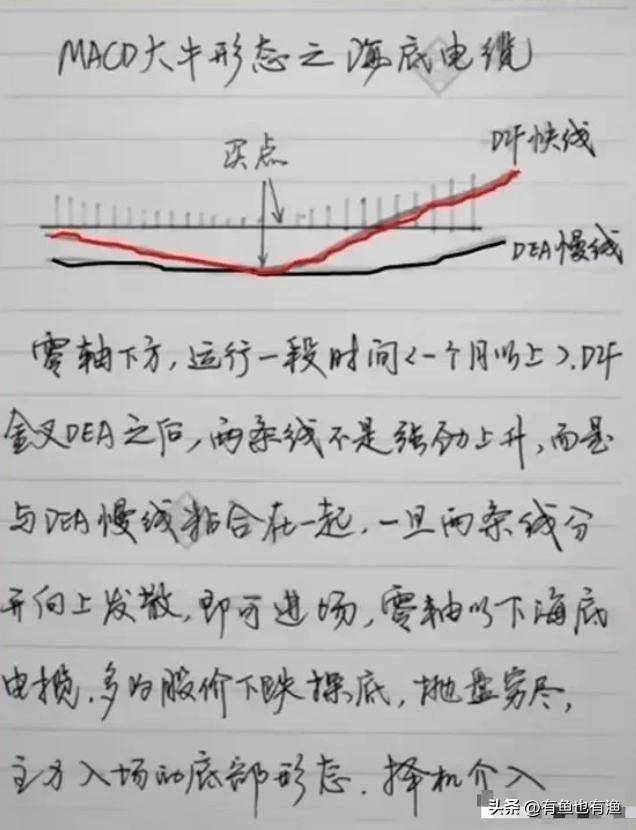 MACD大牛形态之海底电缆
买点
DIF快线
DEA慢线
零轴下方,运行一段时间<一个月以上>.DIF
金叉DEA之后,两条线不是强劲上升,而是
与DEA慢线粘合在一起,一旦两条线分
开向上发散,即可进场,零轴以下海底
电揽.多为股价下跌探底,抛盘穷尽,
主力入场的底部形态.择机介入
头条 @有鱼也有渔